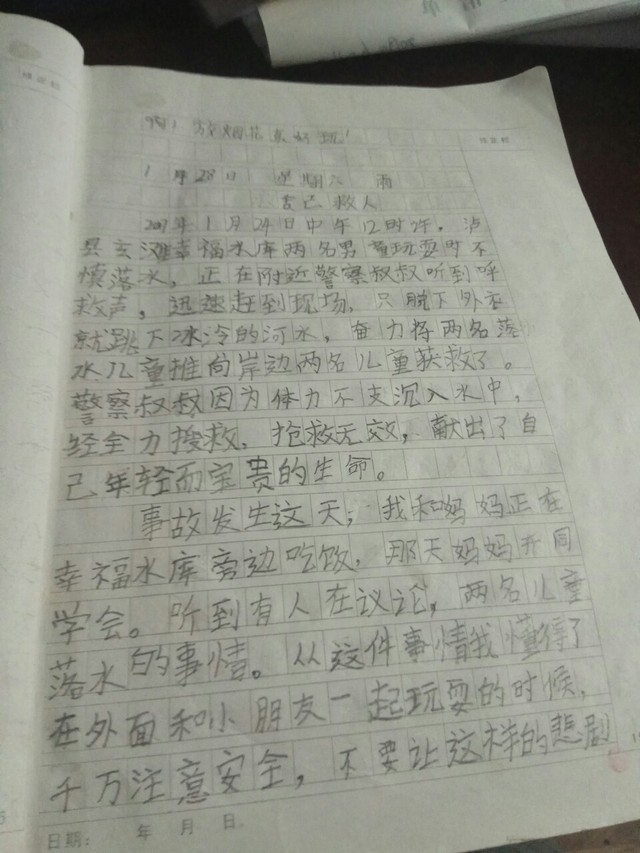 啊！放烟花真好玩！
1月28日 星期六 雨
舍己救人
2017年1月24日中午12时许，泸
县玄滩幸福水库两名男童玩耍时不
慎落水，正在附近警察叔叔听到呼
救声，迅速赶到现场，只脱下外衣
就跳下冰冷的河水，奋力将两名落
水儿童推向岸边两名儿童获救了。
警察叔叔因为体力不支沉入水中，
经全力搜救，抢救无效，献出了自
己年轻而宝贵的生命。
事故发生这天，我和妈妈正在
幸福水库旁边吃饭，那天妈妈开同
学会。听到有人在议论，两名儿童
落水的事情。从这件事情我懂得了
在外面和小朋友一起玩耍的时候，
千万注意安全，不要让这样的悲剧
日期： 年 月 日